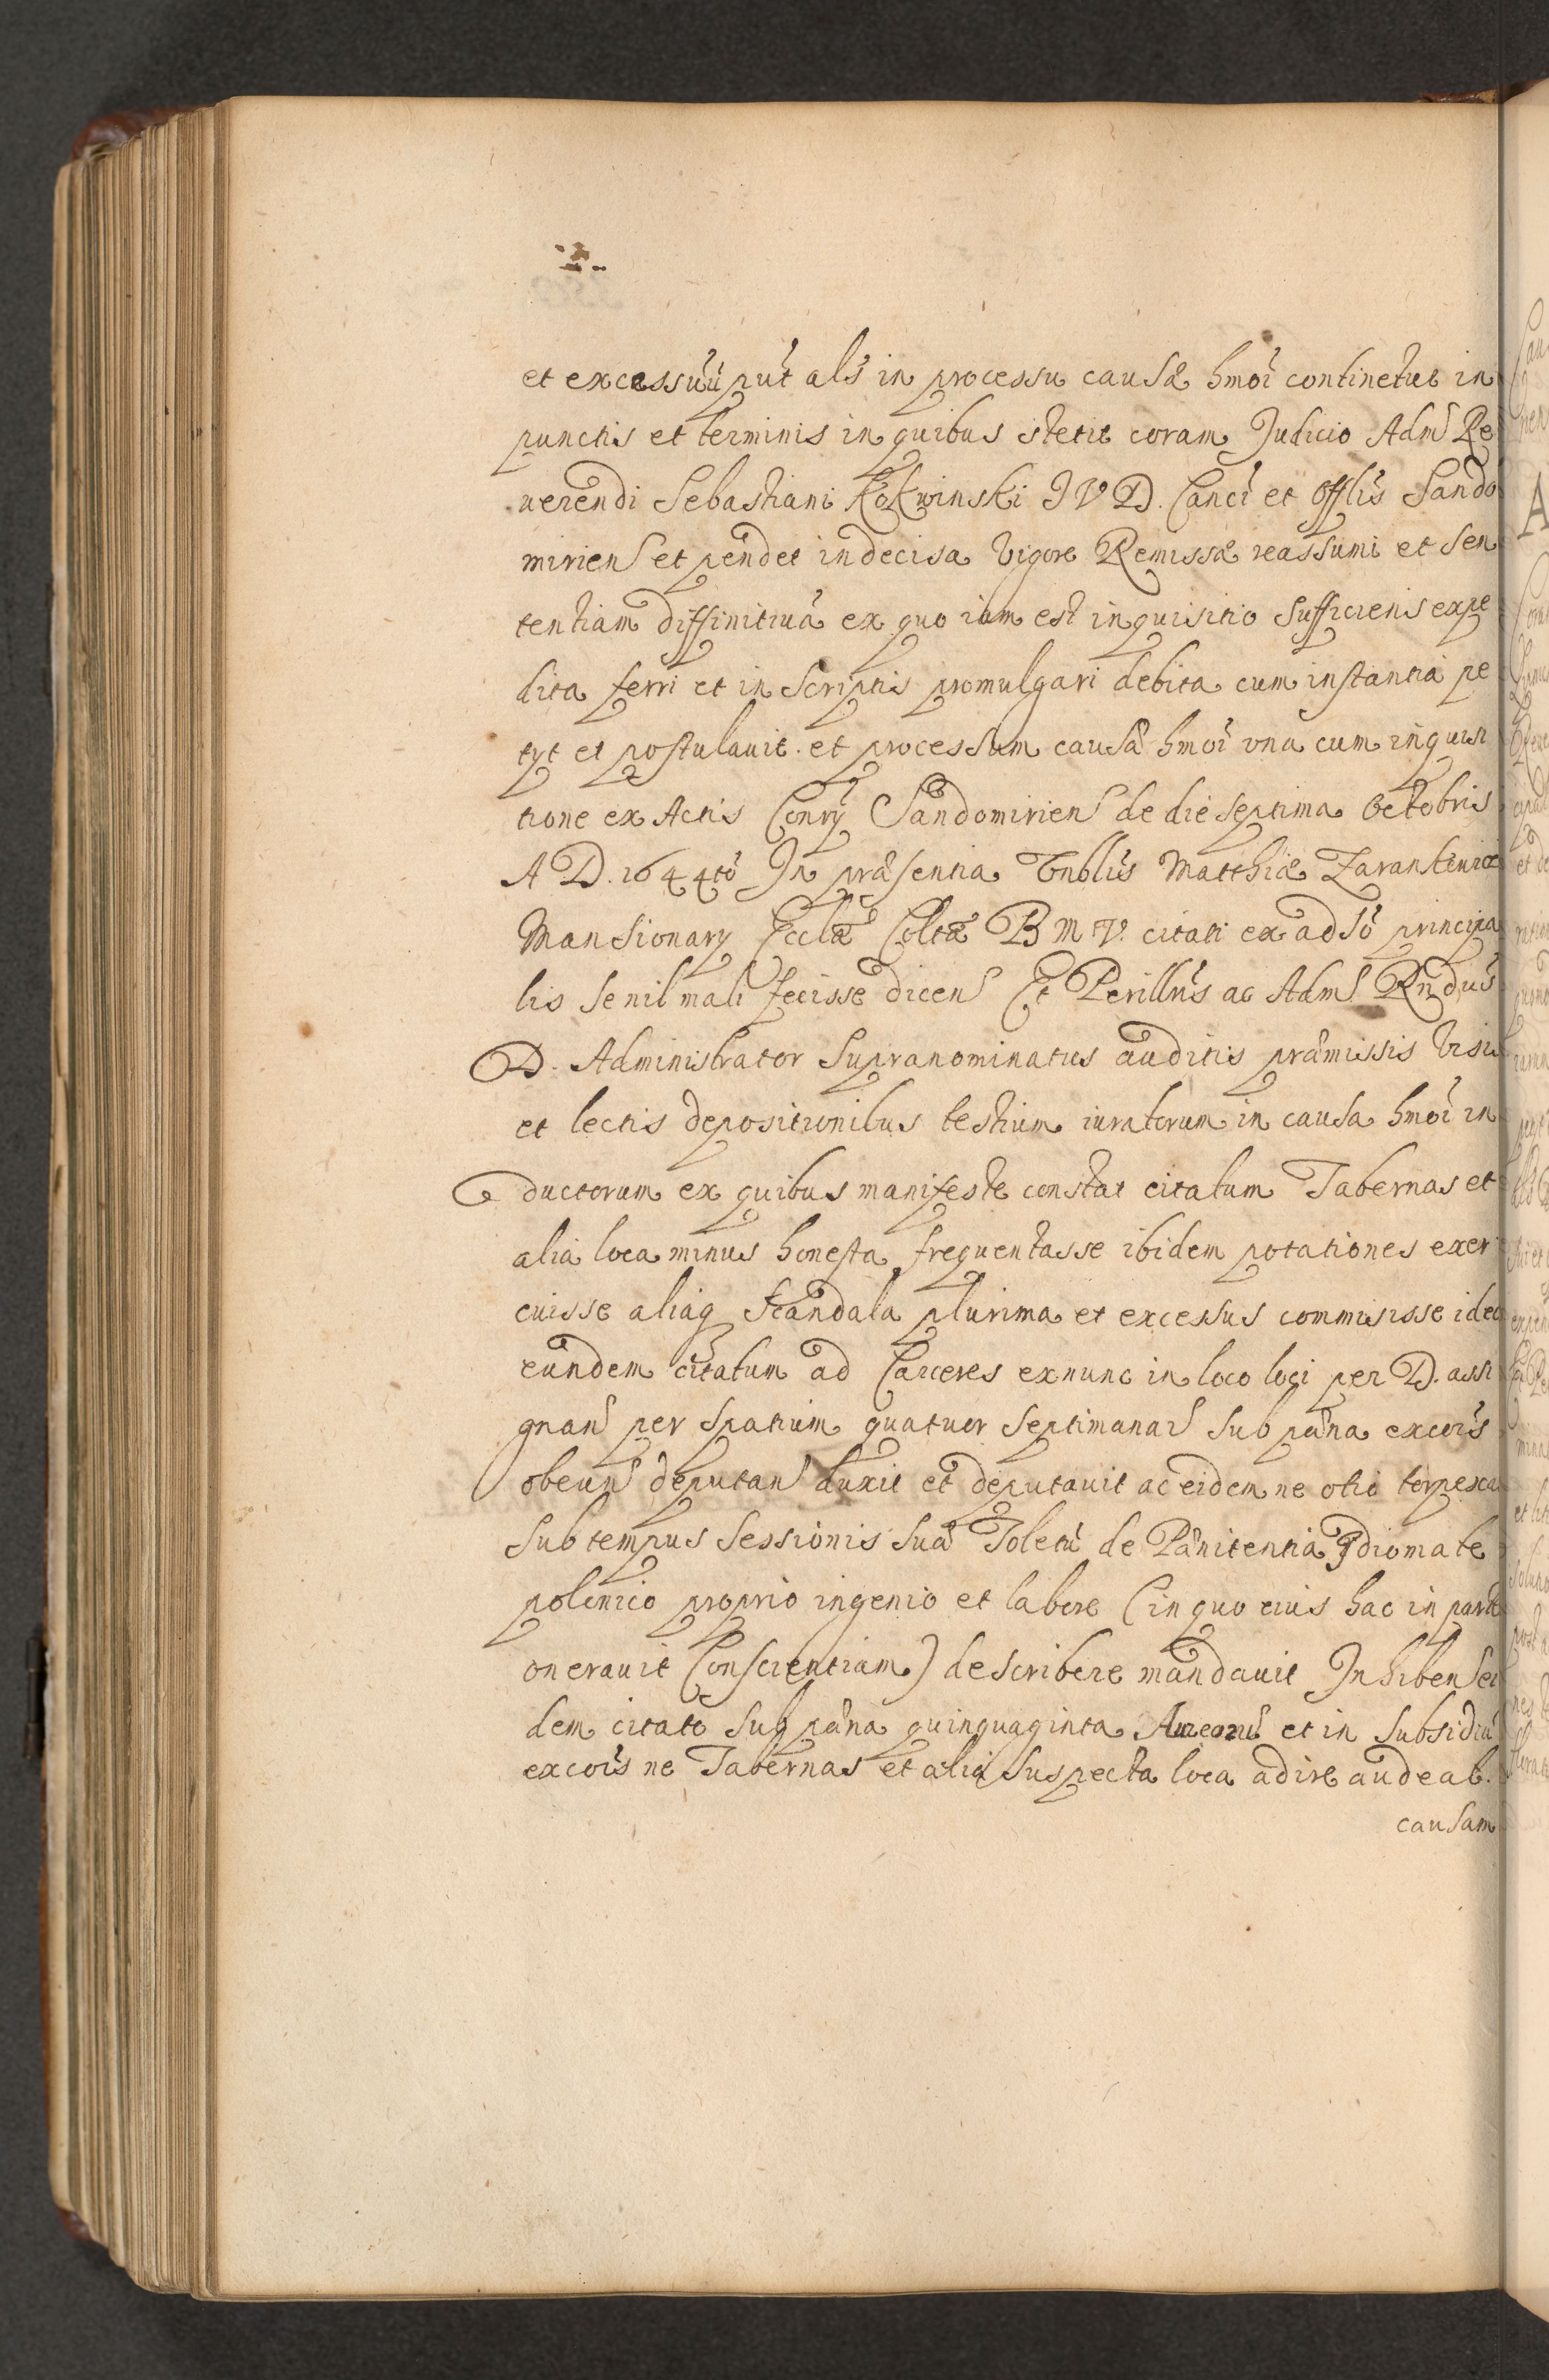 et excessuũ put als in processu causæ hmoi continetur in
punctis et terminis in quibus stetit coram Judicio Adm Re
uerendi Sebastiani Kokwinski J V D. Canci et Offlis Sando
mirien et pendet indecisa vigore Remissæ reassumi et sen
tentiam diffinitiuã ex quo iam est inquisitio sufficiens expe
dita ferri et in scriptis promulgari debita cum instantia pe
tyt et postulauit. et processum causæ hmoi vna cum inquisi
tione ex Actis Conry Sandomirien de die septima Octobris
A D. 1644to In præsentia Vnblis Matthiæ
Mansionary Ecclæ Coltæ B M V. citati ex adso principa
lis se nil mali fecisse dicen Et Perillris ac Adm Rndus
D. Administrator supranominatus auditis præmissis visis
et lectis depositionibus testium iuratorum in causa hmoi in
ductorum ex quibus manifeste constat citatum Tabernas et
alia loca minus honesta frequentasse ibidem potationes exer
cuisse aliaq scandala plurima et excessus commisisse ideo
eundem citatum ad Carceres exnunc in loco loci per D. assi
gnan per spatium quatuor septimanar sub pæna excois
obeun deputan duxit et deputauit ac eidem ne otio torpesca
sub tempus sessionis suæ Toletũ de Pænitentia Idiomate
polonico proprio ingenio et labore (in quo eius hac in parte
onerauit Conscientiam) describere mandauit Inhiben ei
dem citato sub pæna quinquaginta Aureorũ et in subsidiũ
excois ne Tabernas et alia suspecta loca adire audeat.
causam